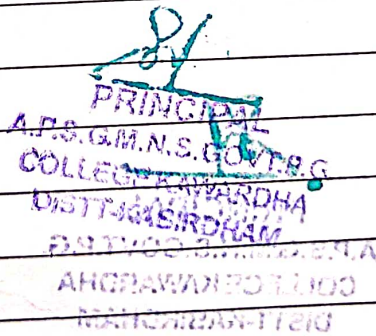 PRINCIPAL
A.P.S.G.M.N.S.GOVT.P.G
COLLEGE KAWARDHA
DISTT-KABIRDHAM